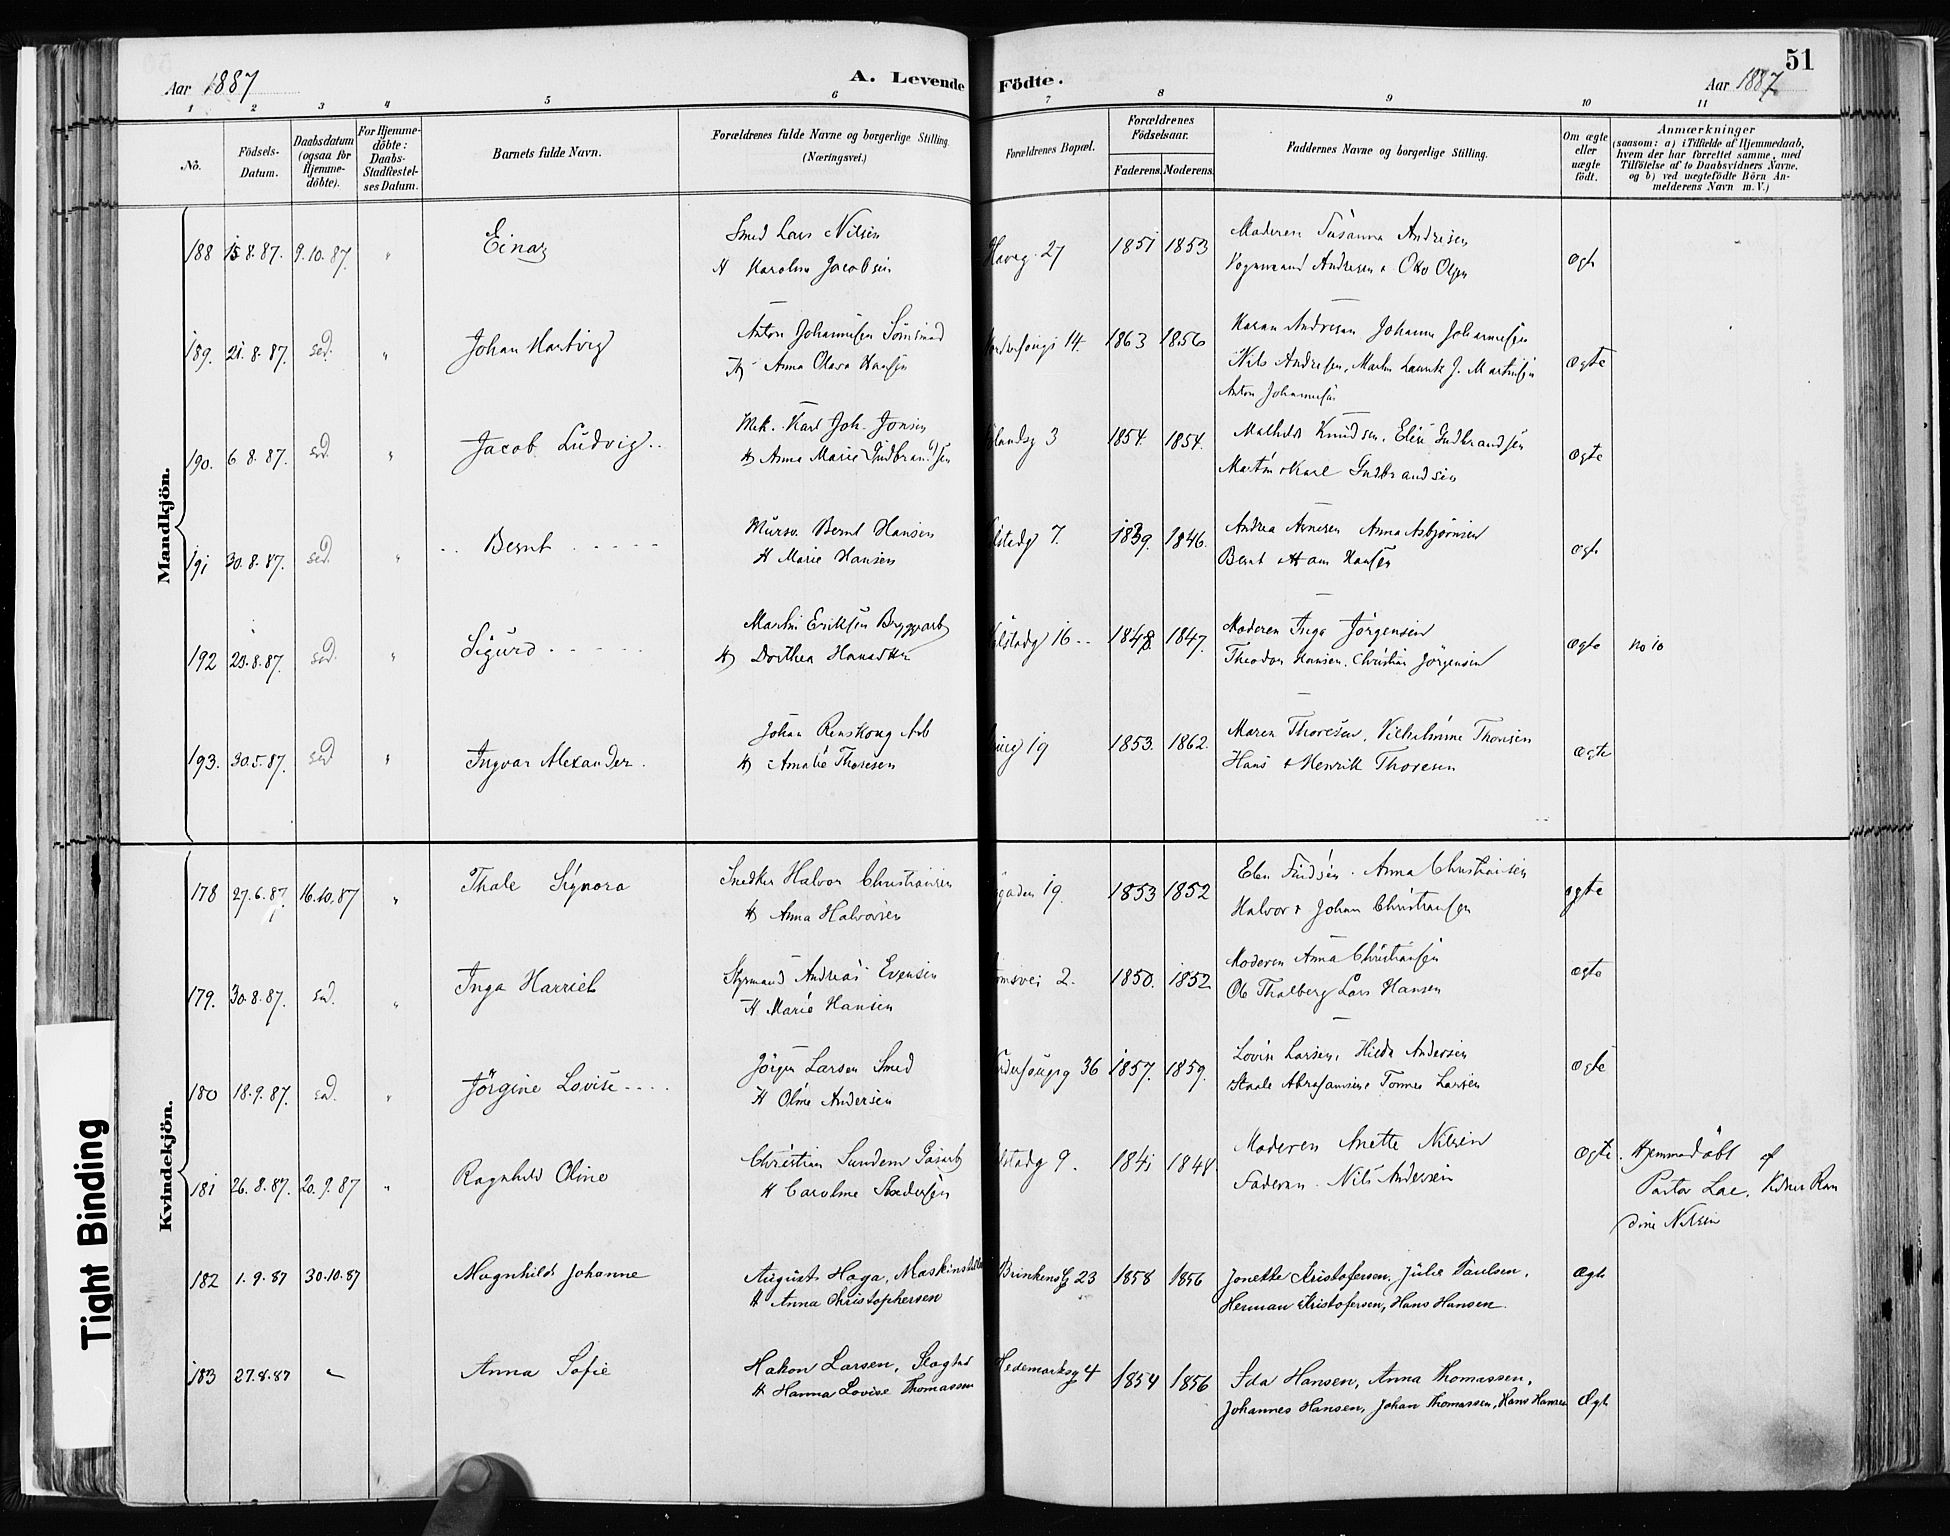 51
Aar 1887
A. Levende Födte.
Aar 1887
1 2 3 4 5 6 7 8 9 10 11
No.
Födsels-Datum.
Daabsdatum (ogsaa for Hjemme-döbte).
For Hjemme-döbte: Daabs-Stadfestel-ses Datum.
Barnets fulde Navn.
Forældrenes fulde Navne og borgerlige Stilling.
(Næringsvei.)
Forældrenes Bopæl.
Forældrenes Födselsaar.
Faderens. Moderens.
Faddernes Navne og borgerlige Stilling.
Om ægte eller uægte födt.
Anmærkninger
(saasom: a) i Tilfælde af Hjemmedaab,
hvem der har forrettet samme, med
Tilföielse af to Daabsvidners Navne,
og b) ved uægtefödte Börn An-
melderens Navn m. V.)
Mandkjön.
188 15.8.87. 9.10.87. " Einar Smed Lars Nilsen 27 1851 1853 Moderen Susanna Andresen Ægte
H Karoline Jacobsen Andresen & Otto Olsen
189. 21.8.87. sed. " Johan Hartvig Anton Johannesen 14. 1863 1856 Karen Andresen Johanne Johannesen Ægte
H Anna Olava Hansen Nils Andresen, Martin J. Martinsen
Anton Johannesen
190. 6.8.87. sed. " Jacob Ludvig Mek. Karl Joh. Jonsen 3 1854. 1854. Mathilde Knudsen. Elise Gudbrandsen Ægte
H Anna Marie Gudbrandsen Martin & Karl Gudbrandsen
191 30.8.87. sed. " Bernt Bernt Hansen 7. 1839. 1846. Andrea Arnesen Anna Asbjörnsen Ægte
H Marie Hansen Bernt & Hans Hansen
192 23.8.87. sed. " Sigurd Martin Eriksen Bryggearb 16 1848 1847. Moderen Inga Jörgensen Ægte no 10
H Dorthea Theodor Hansen. Christian Jörgensen
193. 30.5.87. sed " Ingvar Alexander. Johan Renskoug Arb 19 1853. 1862. Maren Thoresen, Vilhelmine Thoresen Ægte
H Amalie Thoresen Hans & Henrik Thoresen
Kvindekjön.
178 27.6.87. 16.10.87 " Thale Signora Snedker Halvor Christiansen 19. 1853 1852 Anna Christiansen ægte
H Anna Halvorsen Halvor & Johan Christiansen
179. 30.8.87. sed. " Inga Harriet Styrmand Andreas Evensen 2. 1850. 1852 Moderen Anna Christiansen Ægte
H. Marie Hansen Ole Thalberg Lars Hansen
180 18.9.87. sed. " Jörgine Lovise Jörgen Larsen Smed 36 1857. 1859. Lovise Larsen, Hilda Andersen Ægte
H Oline Andersen Larsen
181 26.8.87. 20.9.87 " Ragnhild Oline Christian Sundem 9. 1841 1848 Moderen Anette Nilsen Ægte. Hjemmedöbt af
H Caroline Faderen. Nils Andersen Pastor Lae,
Nilsen
182 1.9.87 30.10.87 Magnhild Johanne August Haga, Brinkensg 23 1858 1856 Jonette Kristofersen, Julie Paulsen, Ægte
H Anna Christophersen Herman Kristofersen, Hans Hansen.
183 27.8.87 Anna Sofie Hakon Larsen, Hedemarksg 4 1854 1856 Ida Hansen, Anna Thomassen,
H Hanna Lovise Thomassen Johannes Hansen, Johan Thomassen, Hans Hansen Ægte
Tight Binding